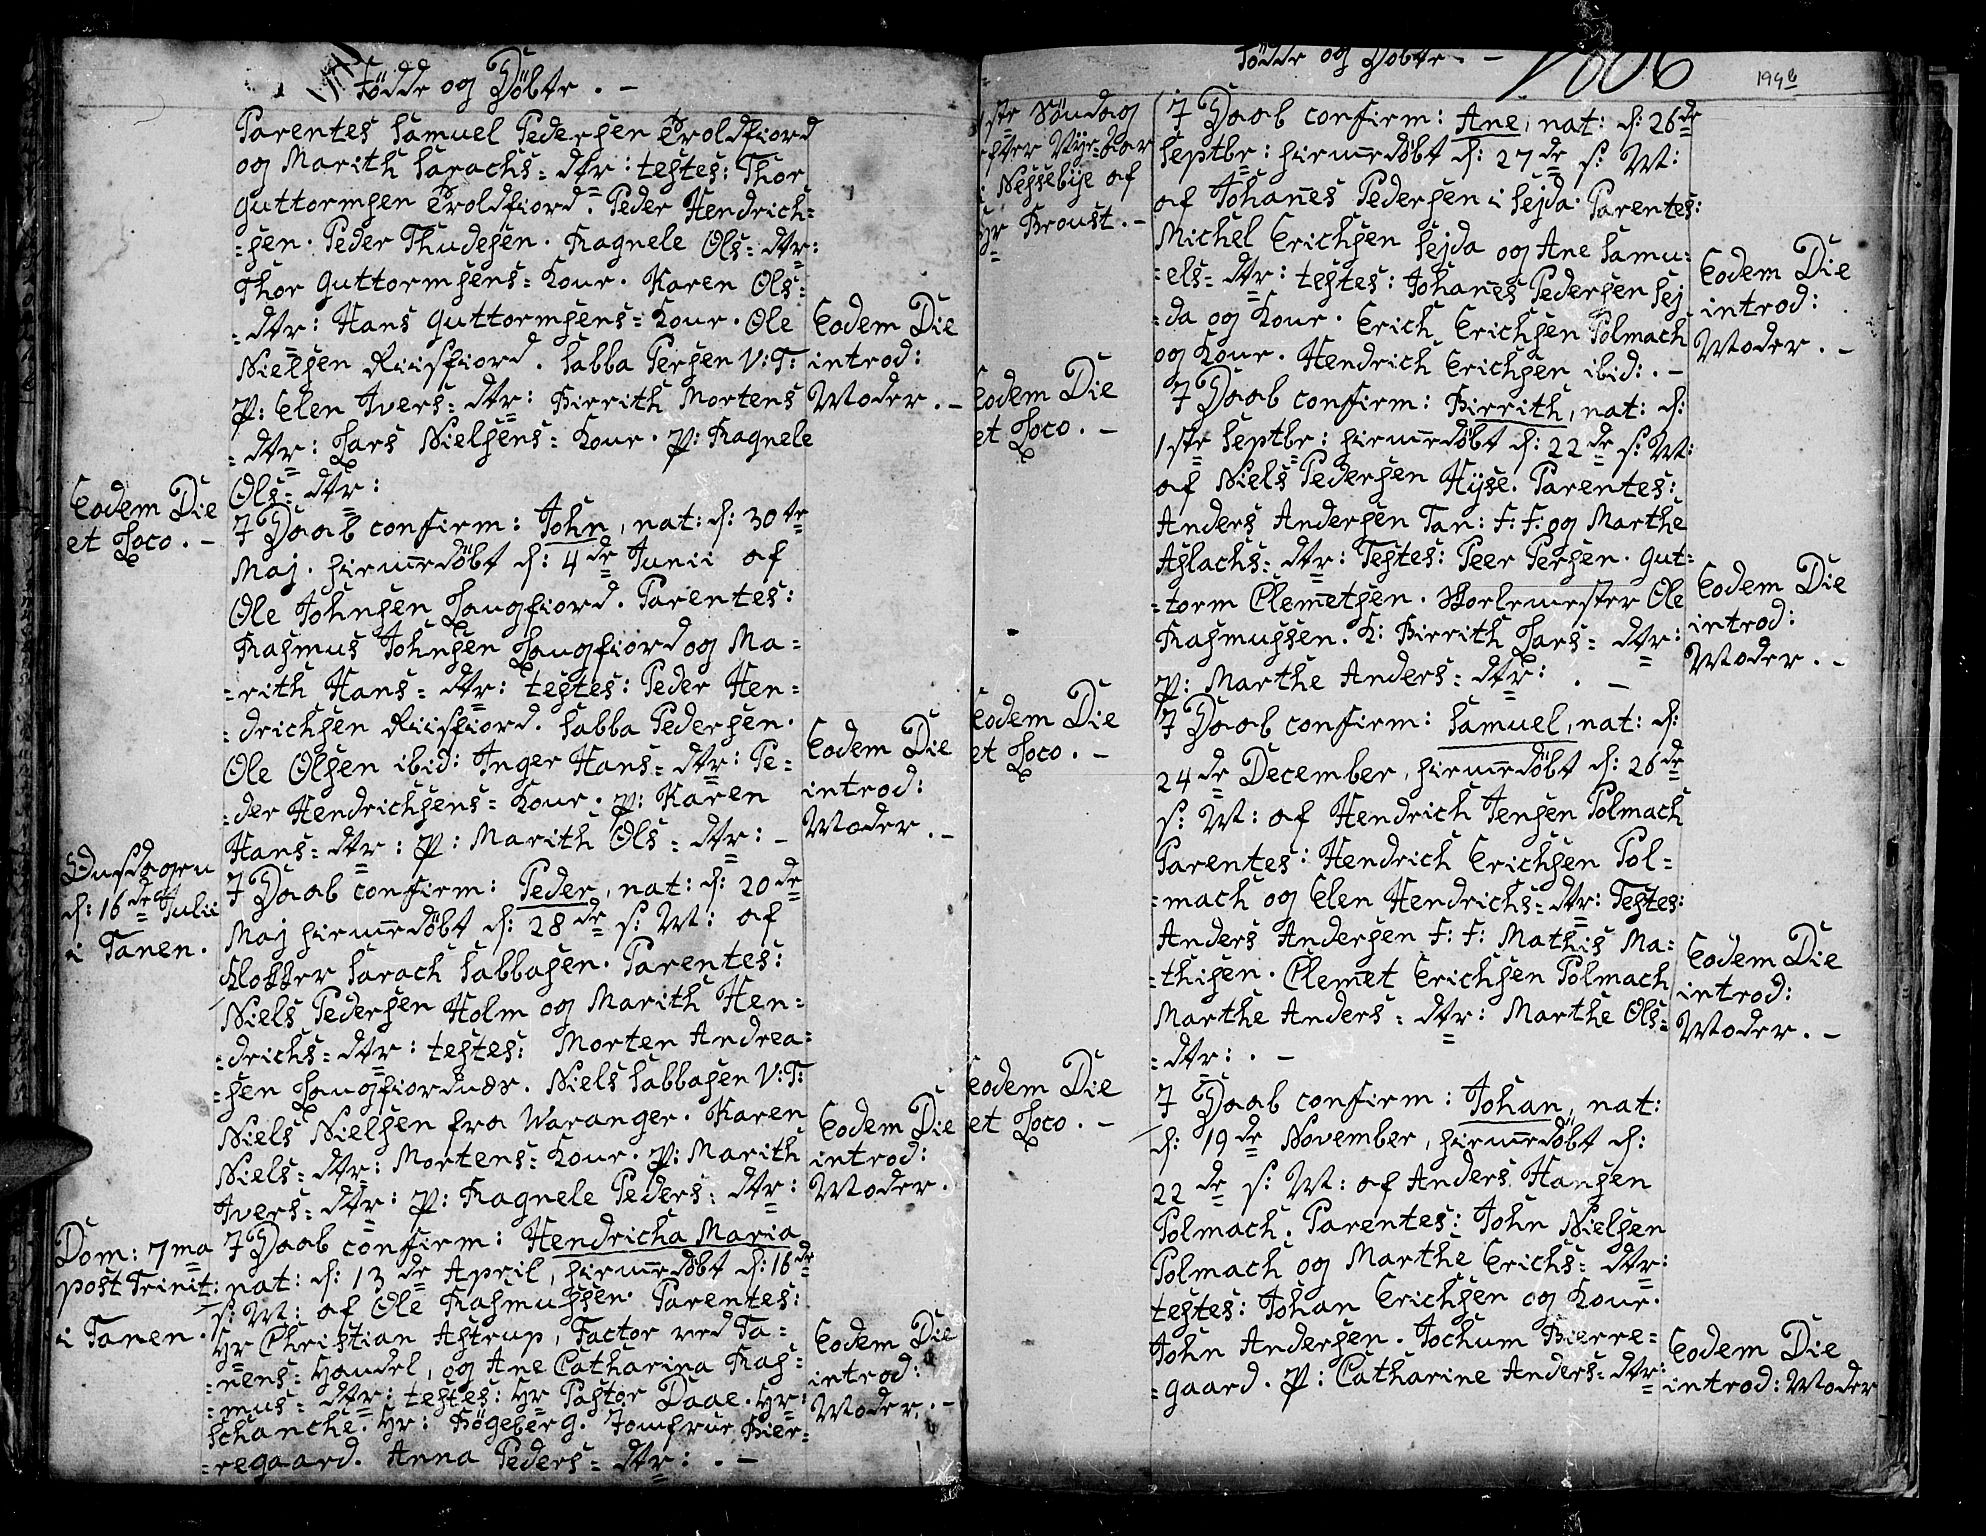 Fødde og Døbte . -
Parentes Samuel Pedersen Troldfiord
og Marith Sarachs= dtr: testes: Thor
Guttormsen Troldfiord. Peder Hendrich=
=sen. Peder Thudesen. Ragnele Ols= dtr:
Thor Guttormsens= Kone. Karen Ols=
=dtr: Hans Guttormsens= Kone. Ole
Nielsen Riisfiord. Sabba Persen V:T:
P: Elen Ivers= dtr: Birrith Mortens
=dtr: Lars Nielsens= Kone. P: Ragnele
Ols= dtr:
Eodem Die
introd:
Moder . -
Eodem Die
et Loco . -
7 Daab confirm: John, nat: d: 30te
Maj. hiemedøbt d: 4de Junii af
Ole Johnsen Langfiord. Parentes:
Rasmus Johnsen Langfiord og Ma=
=rith Hans= dtr: testes: Peder Hen=
=drichsen Riisfiord. Sabba Pedersen.
Ole Olsen ibid: Inger Hans= dtr: Pe=
=der Hendrichsens= Kone. P: Karen
Hans= dtr: P: Marith Ols= dtr: -
Eodem Die
introd:
Moder . -
Onsdagen
d: 16de Julii
i Tanen.
7 Daab confirm: Peder, nat: d: 20de
Maj hiemedøbt d: 28de s: M: af
Klokker Sarach Sabbasen. Parentes:
Niels Pedersen Holm og Marith Hen=
=drichs= dtr: testes: Morten Andrea=
=sen Langfiordnæs. Niels Sabbasen V:T:
Niels Nielsen fra Waranger. Karen
Niels= dtr: Mortens= Kone. P: Marith
Ivers= dtr: P: Ragnele Peders= dtr:
Eodem Die
introd:
Moder.
Dom: 7ma
post Trinit:
i Tanen.
7 Daab confirm: Hendricha Maria
nat: d: 13de April, hiemedøbt d: 16de
s: M: af Ole Rasmussen. Parentes:
Hr Christian Astrup, Factor ved Ta=
=nens= Handel, og Ane Catharina Ras=
=mus= dtr: testes: Hr Pastor Daae. Hr:
Schanche. Hr: Bøgeberg. Jomfrue Bier=
=regaard. Anna Peders= dtr: . -
Eodem Die
introd:
Moder. -
Fødde og Døbte . -
1806
194b
1ste Søndag
efter Nyeaar
i Nessebye af
Hr Proust. -
7 Daab confirm: Ane, nat: d: 26de
Septbr: hiemedøbt d: 27de s: M:
af Johanes Pedersen i Sejda. Parentes:
Michel Erichsen Sejda og Ane Samu=
=els= dtr: testes: Johanes Pedersen Sej
=da og Kone. Erich Erichsen Polmach
og Kone. Hendrich Erichsen ibid: . -
Eodem Die
introd:
Moder . -
Eodem Die
et Loco . -
7 Daab confirm: Birrith, nat: d:
1ste Septbr: hiemedøbt d: 22de s: M:
af Niels Pedersen Hÿse. Parentes:
Anders Andersen Tan: F: F: og Marthe
Aslachs= dtr: Testes: Peer Persen. Gut=
=torm Clemetsen. Skolemester Ole
Rasmussen. K: Birrith Lars= dtr:
P: Marthe Anders= dtr: . -
Eodem Die
introd:
Moder . -
Eodem Die
et Loco . -
7 Daab confirm: Samuel, nat: d:
24de December, hiemedøbt d: 26de
s: M: af Hendrich Jensen Polmach
Parentes: Hendrich Erichsen Pol=
=mach og Elen Hendrichs= dtr: Testes:
Anders Andersen F: F: Mathis Ma=
=thisen. Clemet Erichsen Polmach
Marthe Anders= dtr: Marthe Ols=
=dtr: . -
Eodem Die
introd:
Moder . -
Eodem Die
et Loco . -
7 Daab confirm: Johan, nat:
d: 19de November, hiemedøbt d:
22de s: M: af Anders Hansen
Polmach. Parentes: John Nielsen
Polmach og Marthe Erichs= dtr:
testes: Johan Erichsen og Kone.
John Andersen. Jochum Bierre=
=gaard. P: Catharine Anders= dtr:
Eodem Die
introd: Moder